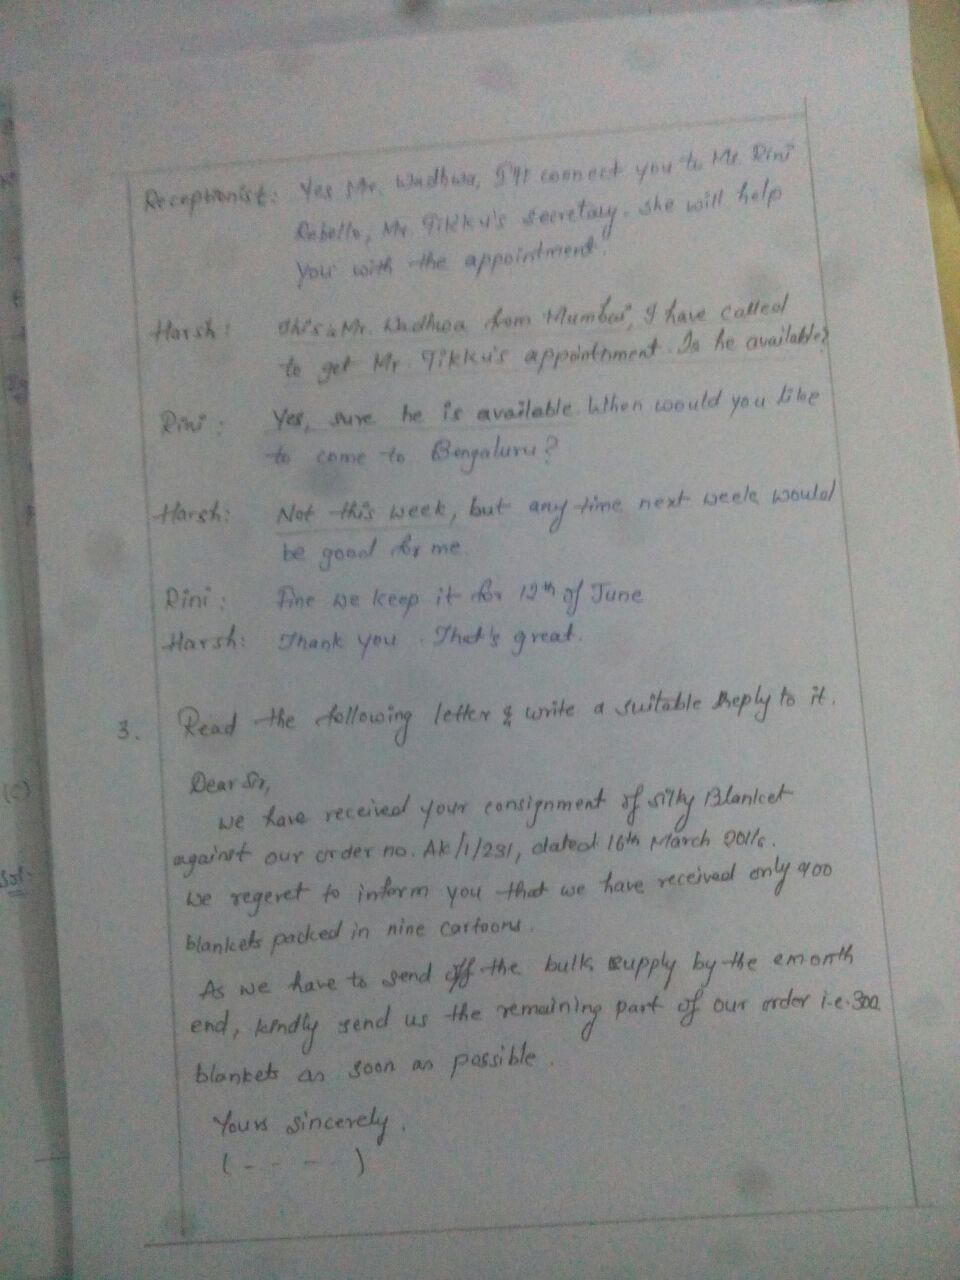 Receptionist: Yes Mr. Wadhwa, I'll connect you to Ms. Rini
Rebello, Mr. Tikku's secretary. She will help
you with the appointment.
Harsh: This is Mr. Wadhwa from Mumbai, I have called
to get Mr. Tikku's appointment. Is he available?
Rini: Yes, sure he is available. When would you like
to come to Bengaluru?
Harsh: Not this week, but any time next week would
be good for me.
Rini: Fine we keep it for 12th of June
Harsh: Thank you. That's great.
3. Read the following letter & write a suitable Reply to it.
Dear Sir,
we have received your consignment of silky Blanket
against our order no. AK/1/231, dated 16th March 2016.
we regeret to inform you that we have received only 900
blankets packed in nine cartoons.
As we have to send off the bulk supply by the emonth
end, kindly send us the remaining part of our order i.e. 300
blankets as soon as possible.
Yours sincerely,
(- - - -)
(C)
Sol: